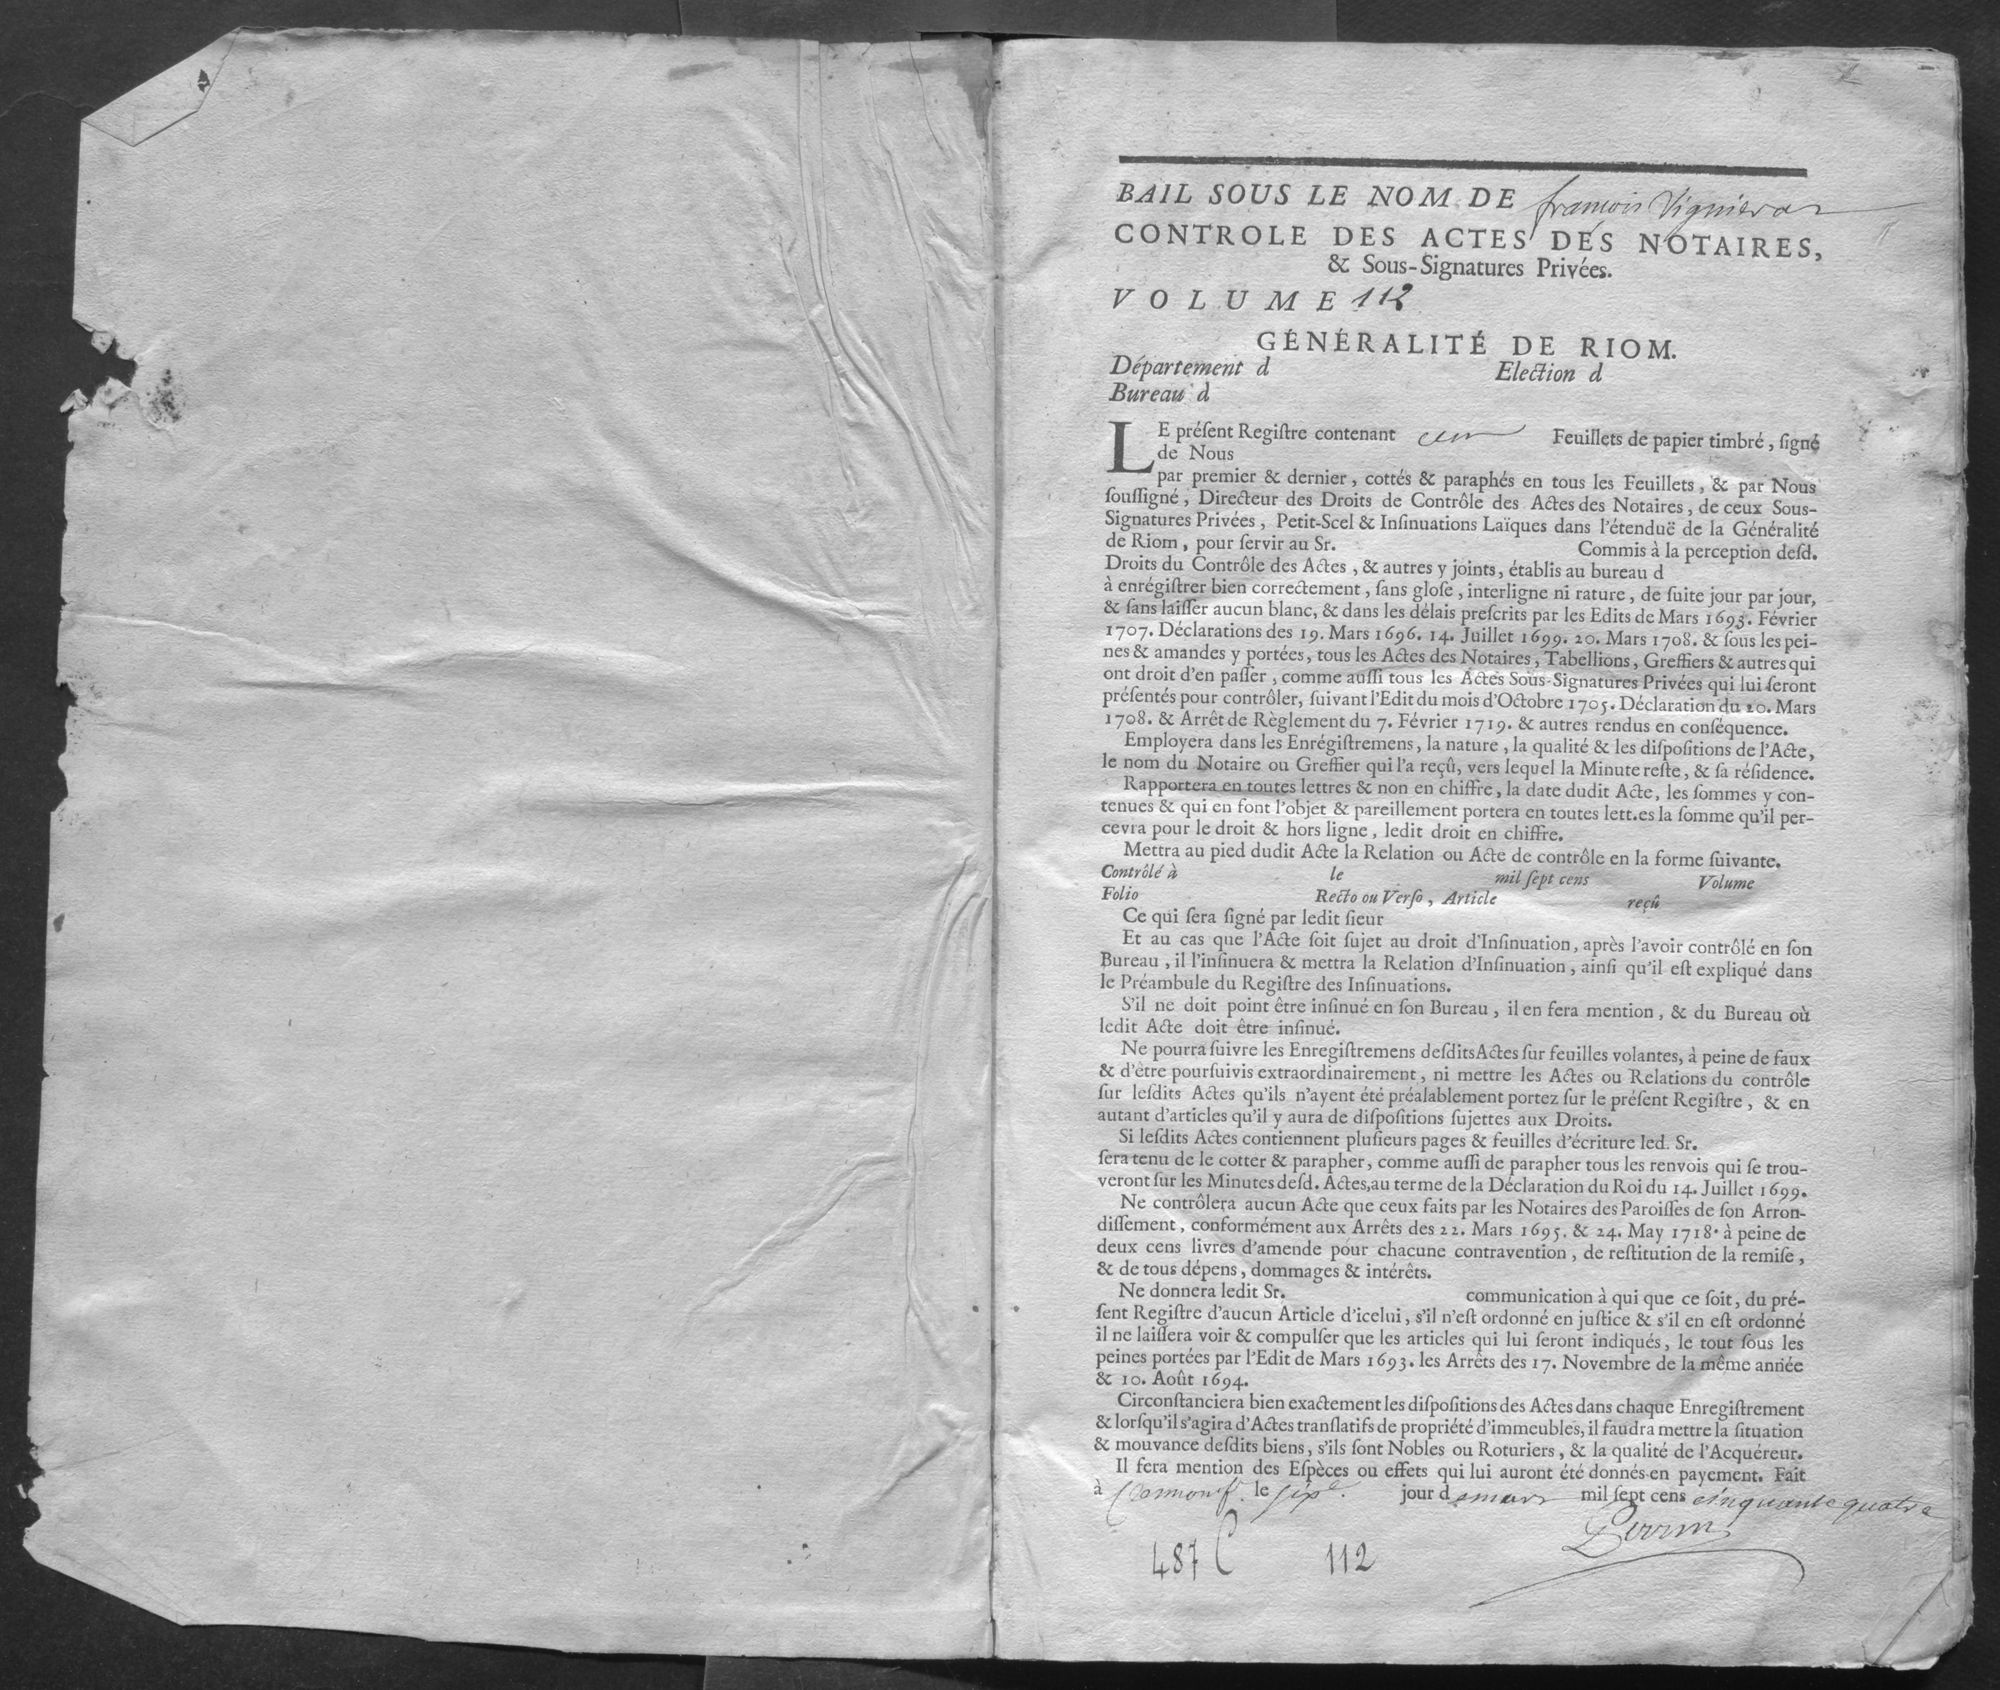 BAIL SOUS LE NOM DE françois Vignieras
CONTROLE DES ACTES DES NOTAIRES,
& Sous-Signatures Privées.
VOLUME 112
GÉNÉRALITÉ DE RIOM.
Département d Election d
Bureau d
LE préſent Regiſtre contenant cent Feuillets de papier timbré, ſigné
de Nous
par premier & dernier, cottés & paraphés en tous les Feuillets, & par Nous
ſouſſigné, Directeur des Droits de Contrôle des Actes des Notaires, de ceux Sous-
Signatures Privées, Petit-Scel & Inſinuations Laïques dans l'étenduë de la Généralité
de Riom, pour ſervir au Sr. Commis à la perception deſd.
Droits du Contrôle des Actes, & autres y joints, établis au bureau d
à enrégiſtrer bien correctement, ſans gloſe, interligne ni rature, de ſuite jour par jour,
& ſans laiſſer aucun blanc, & dans les délais preſcrits par les Edits de Mars 1693. Février
1707. Déclarations des 19. Mars 1696. 14. Juillet 1699. 20. Mars 1708. & ſous les pei-
nes & amandes y portées, tous les Actes des Notaires, Tabellions, Greffiers & autres qui
ont droit d'en paſſer, comme auſſi tous les Actes Sous-Signatures Privées qui lui ſeront
préſentés pour contrôler, ſuivant l'Edit du mois d'Octobre 1705. Déclaration du 20. Mars
1708. & Arrêt de Règlement du 7. Février 1719. & autres rendus en conſéquence.
Employera dans les Enrégiſtremens, la nature, la qualité & les diſpoſitions de l'Acte,
le nom du Notaire ou Greffier qui l'a reçû, vers lequel la Minute reſte, & ſa réſidence.
Rapportera en toutes lettres & non en chiffre, la date dudit Acte, les ſommes y con-
tenues & qui en font l'objet & pareillement portera en toutes lett.es la ſomme qu'il per-
cevra pour le droit & hors ligne, ledit droit en chiffre.
Mettra au pied dudit Acte la Relation ou Acte de contrôle en la forme ſuivante.
Contrôlé à le mil ſept cens Volume
Folio Recto ou Verſo, Article reçû
Ce qui ſera ſigné par ledit ſieur
Et au cas que l'Acte ſoit ſujet au droit d'Inſinuation, après l'avoir contrôlé en ſon
Bureau, il l'inſinuera & mettra la Relation d'Inſinuation, ainſi qu'il eſt expliqué dans
le Préambule du Regiſtre des Inſinuations.
S'il ne doit point être inſinué en ſon Bureau, il en fera mention, & du Bureau où
ledit Acte doit être inſinué.
Ne pourra ſuivre les Enregiſtremens deſdits Actes ſur feuilles volantes, à peine de faux
& d'être pourſuivis extraordinairement, ni mettre les Actes ou Relations du contrôle
ſur leſdits Actes qu'ils n'ayent été préalablement portez ſur le préſent Regiſtre, & en
autant d'articles qu'il y aura de diſpoſitions ſujettes aux Droits.
Si leſdits Actes contiennent pluſieurs pages & feuilles d'écriture led. Sr.
ſera tenu de le cotter & parapher, comme auſſi de parapher tous les renvois qui ſe trou-
veront ſur les Minutes deſd. Actes, au terme de la Déclaration du Roi du 14. Juillet 1699.
Ne contrôlera aucun Acte que ceux faits par les Notaires des Paroiſſes de ſon Arron-
diſſement, conformément aux Arrêts des 22. Mars 1695. & 24. May 1718. à peine de
deux cens livres d'amende pour chacune contravention, de reſtitution de la remiſe,
& de tous dépens, dommages & intérêts.
Ne donnera ledit Sr. communication à qui que ce ſoit, du pré-
ſent Regiſtre d'aucun Article d'icelui, s'il n'eſt ordonné en juſtice & s'il en eſt ordonné
il ne laiſſera voir & compulſer que les articles qui lui ſeront indiqués, le tout ſous les
peines portées par l'Edit de Mars 1693. les Arrêts des 17. Novembre de la même année
& 10. Août 1694.
Circonſtanciera bien exactement les diſpoſitions des Actes dans chaque Enregiſtrement
& lorſqu'il s'agira d'Actes tranſlatifs de propriété d'immeubles, il faudra mettre la ſituation
& mouvance deſdits biens, s'ils ſont Nobles ou Roturiers, & la qualité de l'Acquéreur.
Il fera mention des Eſpèces ou effets qui lui auront été donnés en payement. Fait
à Clermont f. le sixe. jour d emars mil ſept cens cinquante quatre
Perrin
487 C 112